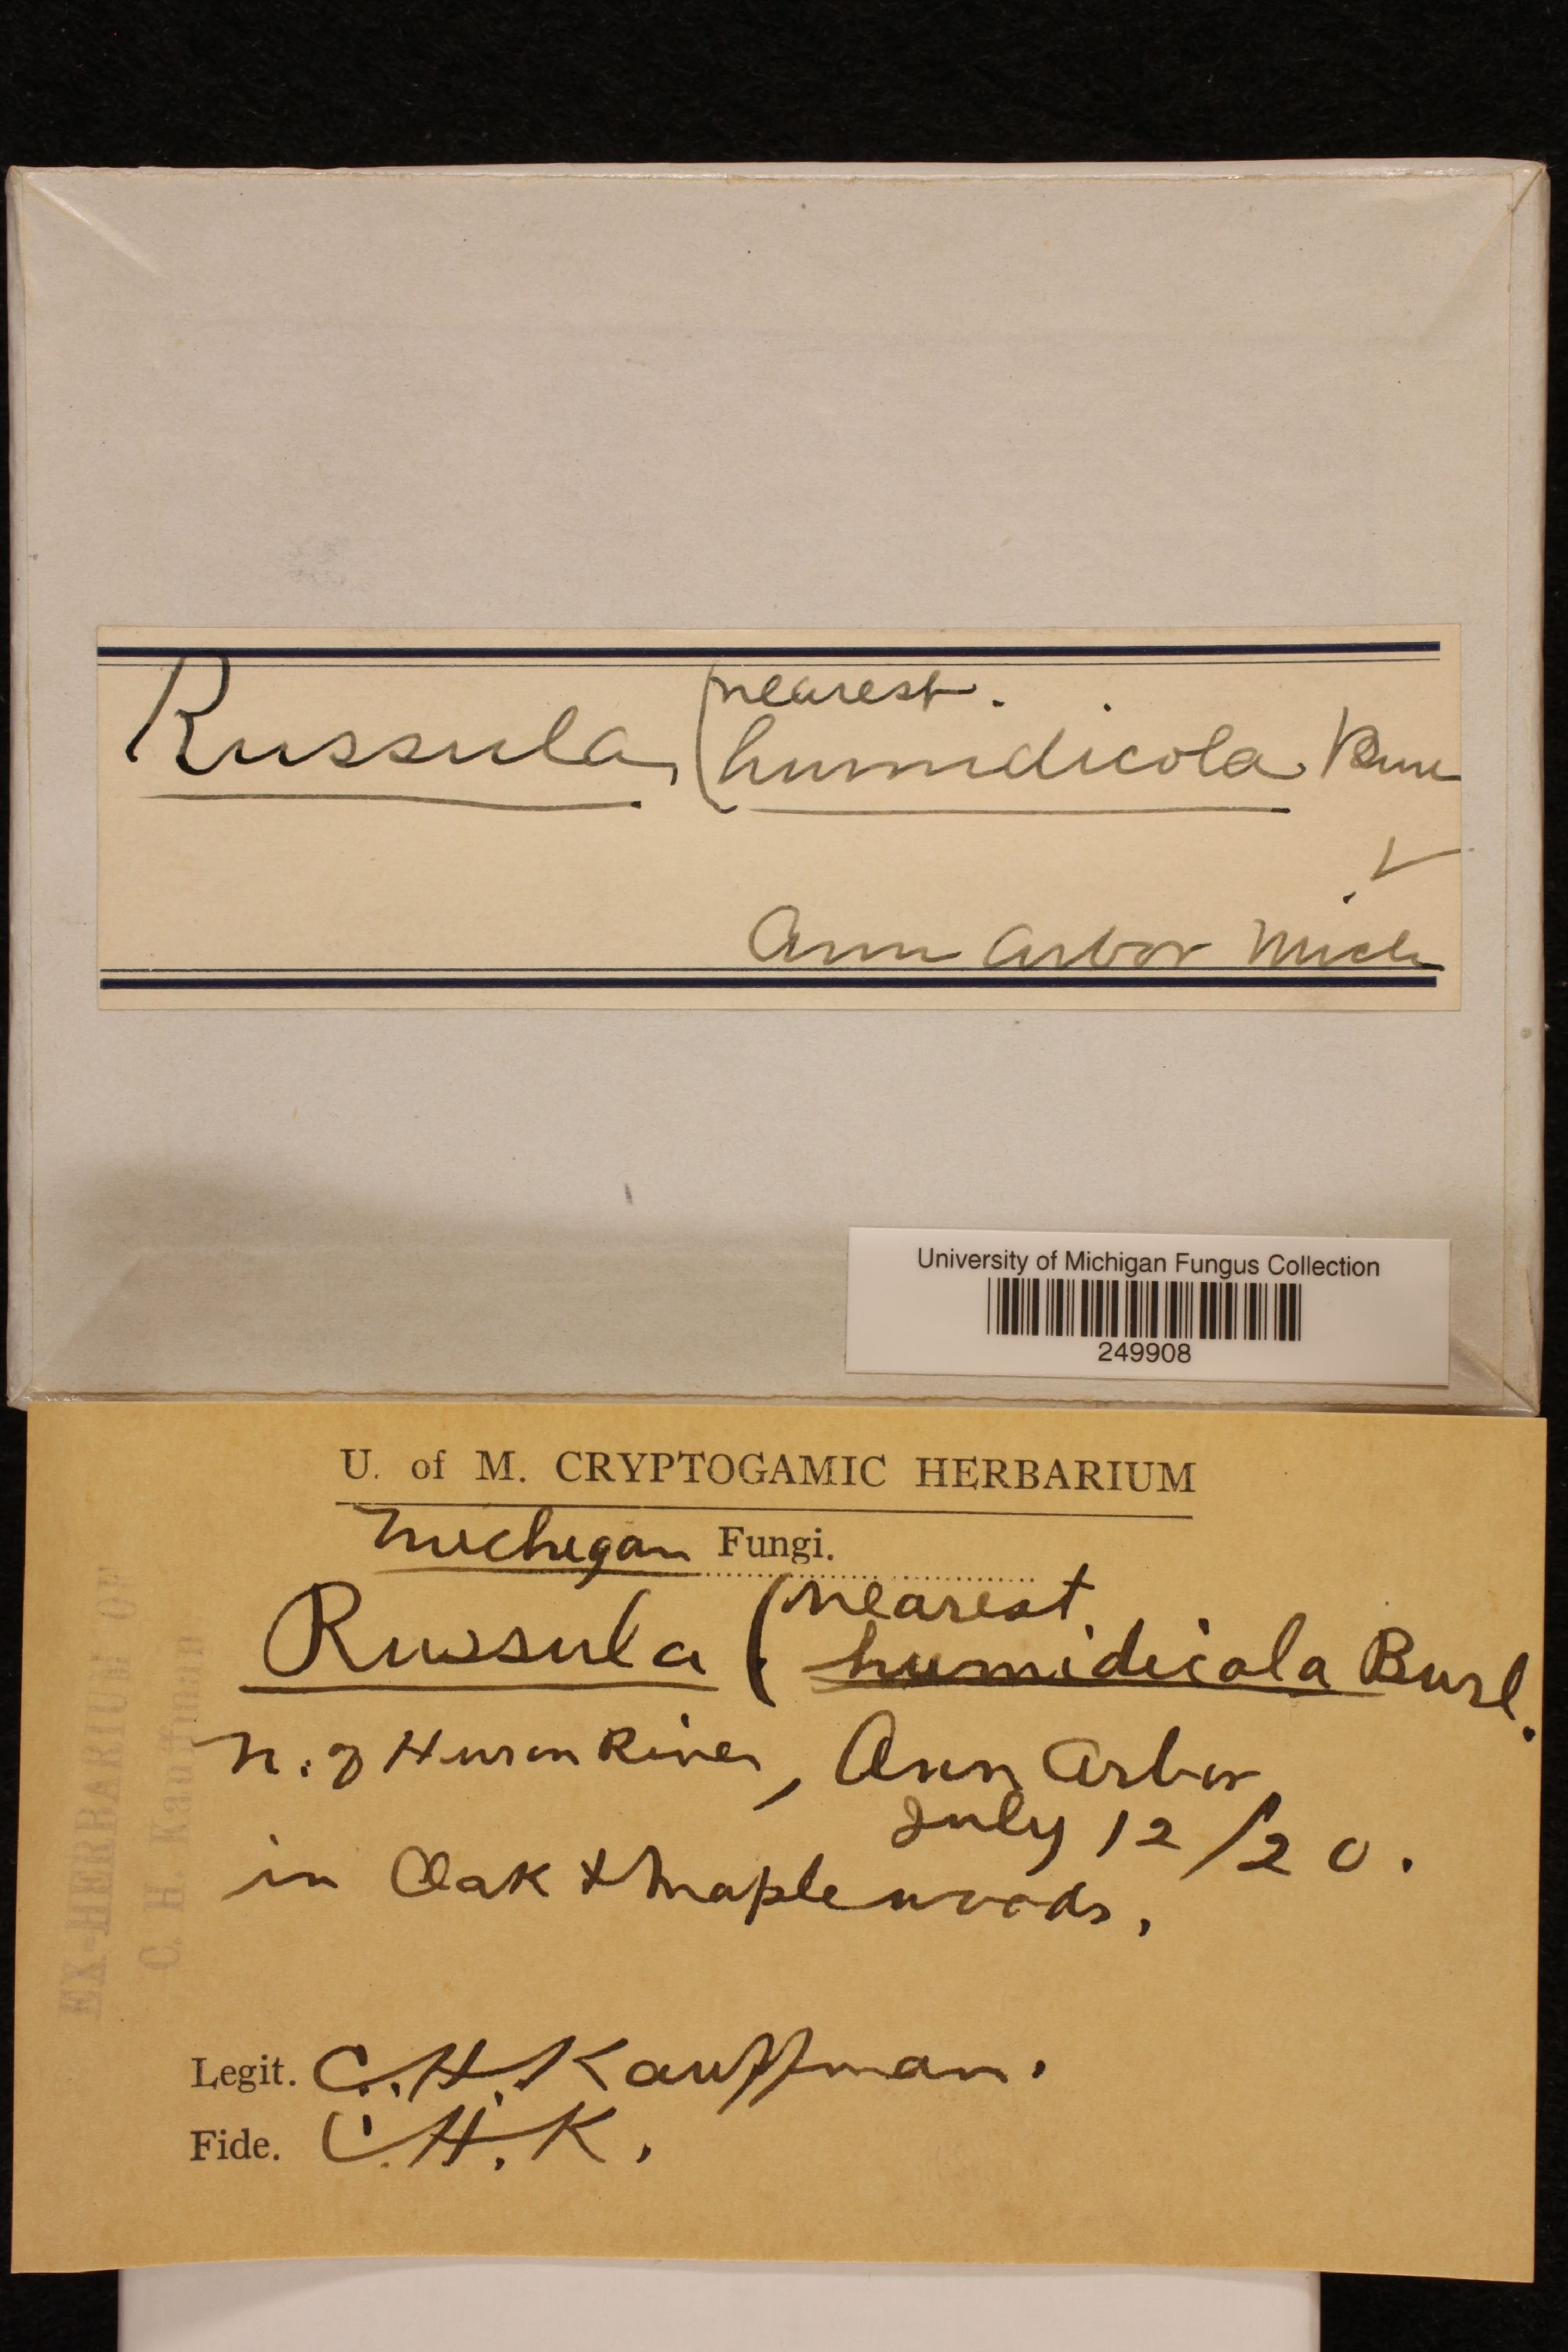 Russula, (nearest.
humidicola Burl
Ann Arbor Mich
University of Michigan Fungus Collection
249908
U. of M. CRYPTOGAMIC HERBARIUM
Michigan Fungi.
Russula (nearest
humidicola Burl.
N. of Huron River, Ann Arbor
July 12/20.
in Oak & Maple woods.
Legit. C. H. Kauffman.
Fide. C. H. K.
EX-HERBARIUM OF
C. H. Kauffman